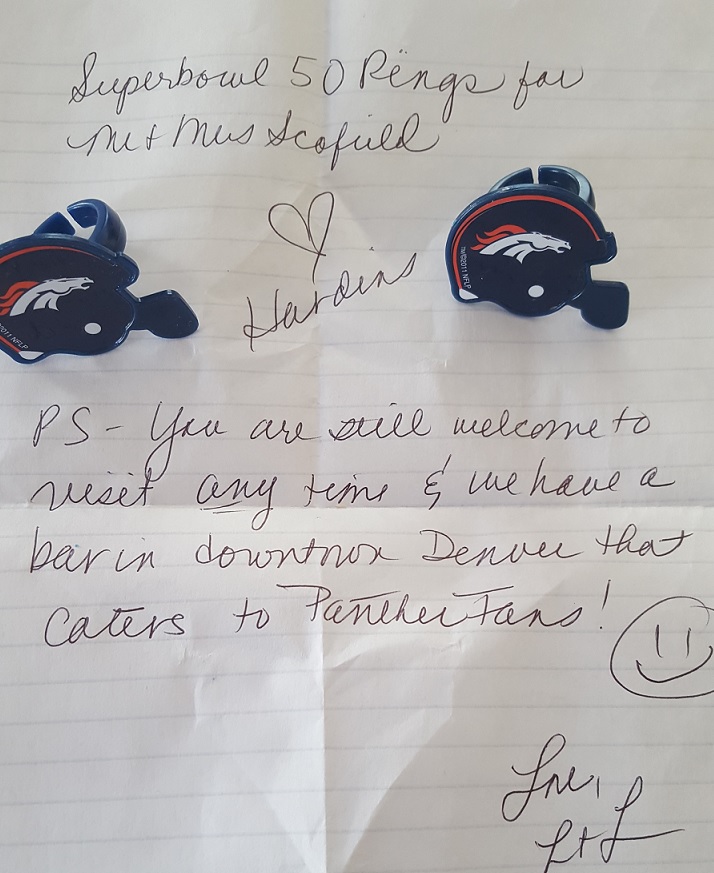 Superbowl 50 Rings for
Mr + Mrs Scofield
Hardins
TM/©2011 NFLP
2011 NFLP
PS - You are still welcome to
visit any time & we have a
bar in downtown Denver that
Caters to Panther Fans!
Love,
L + L